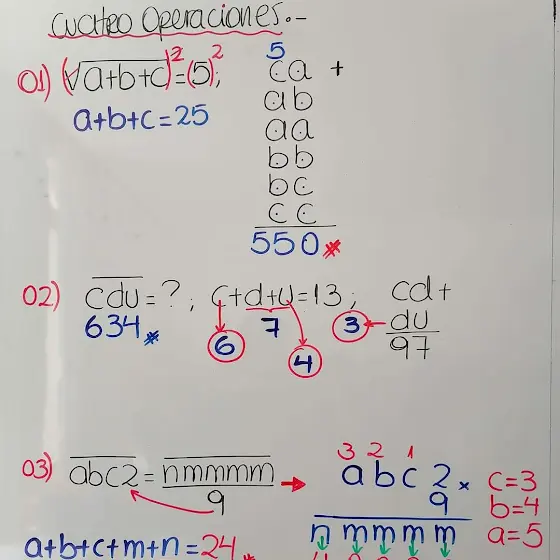 Cuatro Operaciones.-
01) (√a+b+c)²=(5)²;
a+b+c=25
5
ca +
ab
aa
bb
bc
cc
550*
02) cdu=?; c+d+u=13; cd+
634* 6 7 4 3 du
97
03) abc2 = nmmmm
9
3 2 1
abc2 x
9
nmmmm
c=3
b=4
a=5
a+b+c+m+n=24